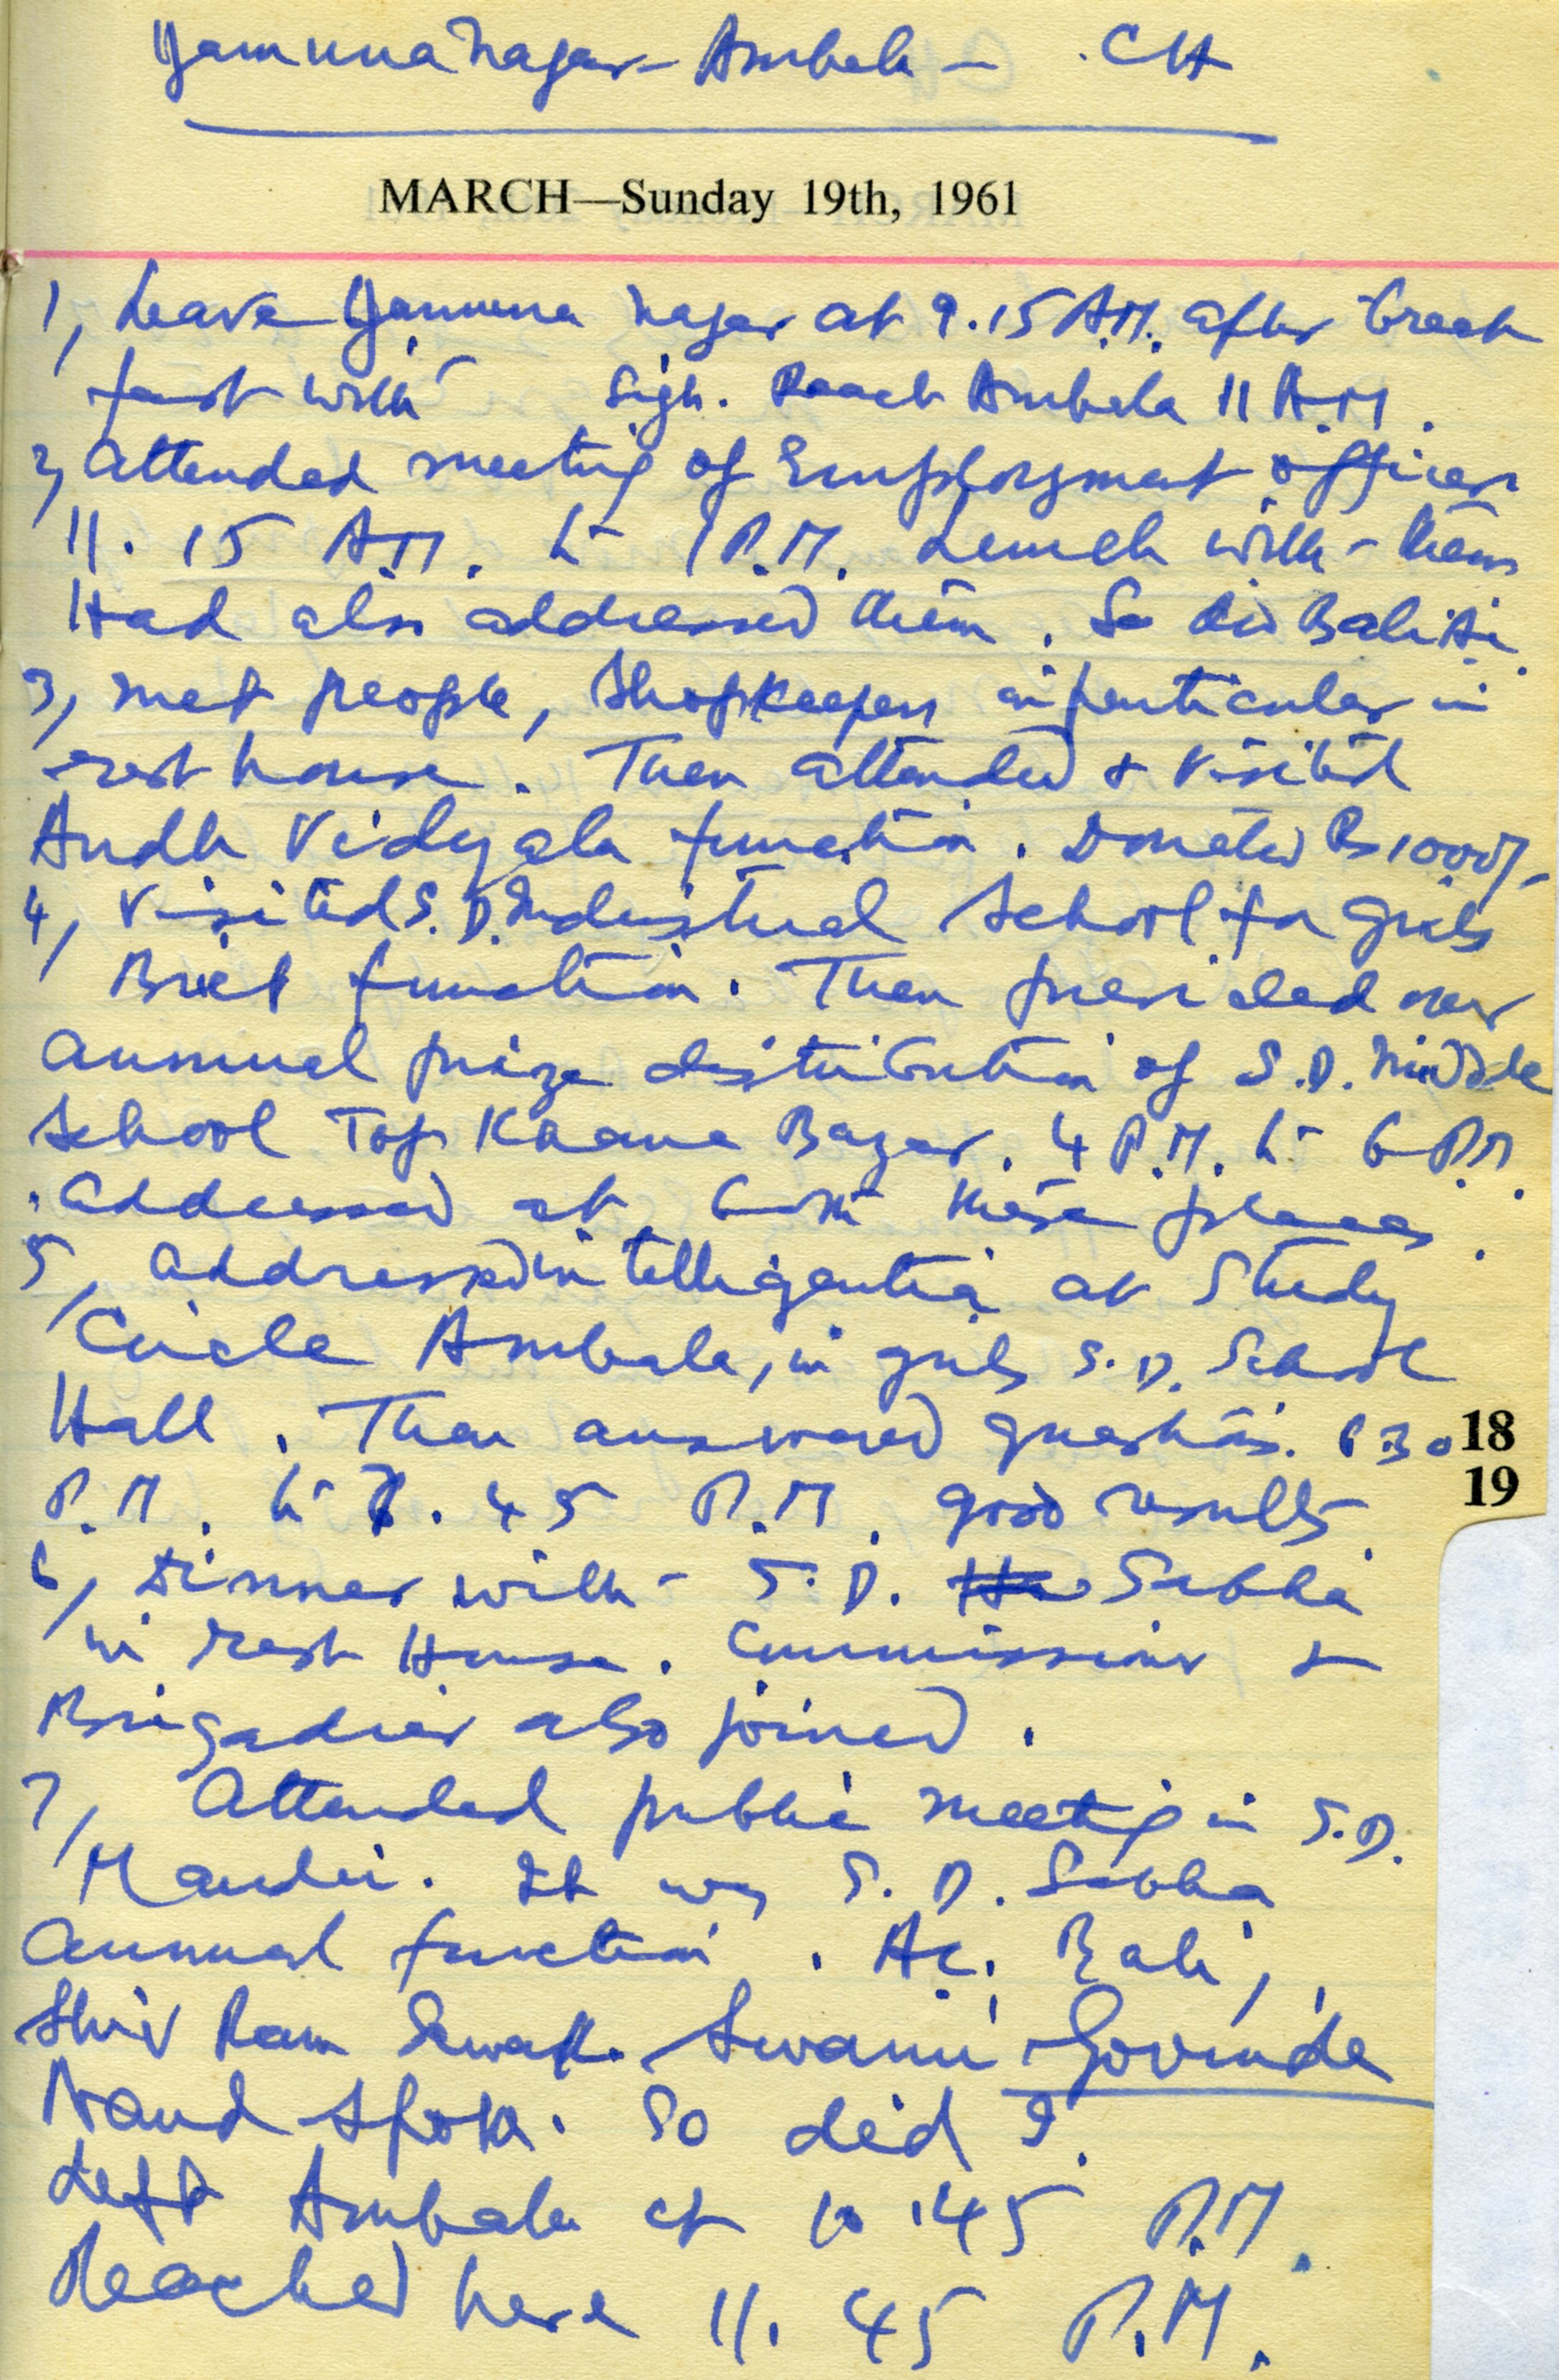 Yamuna Nagar - Ambala - CH
MARCH—Sunday 19th, 1961
1, Leave Yamuna Nagar at 9.15 A.M. after break
fast with Sigh. Reach Ambala 11 A.M.
2, Attended meeting of Employment officers
11.15 A.M. to 1 P.M. Lunch with - them
Had also addressed them. So did Bali Ji.
3, met people, Shopkeepers in particular in
rest house. Then attended & visited
Andh Vidyala function. Donated Rs 1000/-
4, Visited S.D. Industrial School for girls
Brief function. Then presided over
annual prize distribution of S.D. Middle
School Top Khana Bazar. 4 P.M. to 6 P.M.
Addressed at both these places.
5, Addressed intelligentia at Study
Circle Ambala, in girls S.D. School
Hall. Then answered questions. 630
P.M. to 7.45 P.M. good results.
6, Dinner with - S.D. Sabha
in rest House. Commissioner &
Brigadier also joined.
7, Attended public meeting in S.D.
Mandir. It was S.D. Sabha
Annual function. Ac. Bali,
Shiv Ram Sewak. Swami Govinda
Nand spoke. So did I.
Left Ambala at 10.45 P.M.
Reached here 11.45 P.M.
18
19